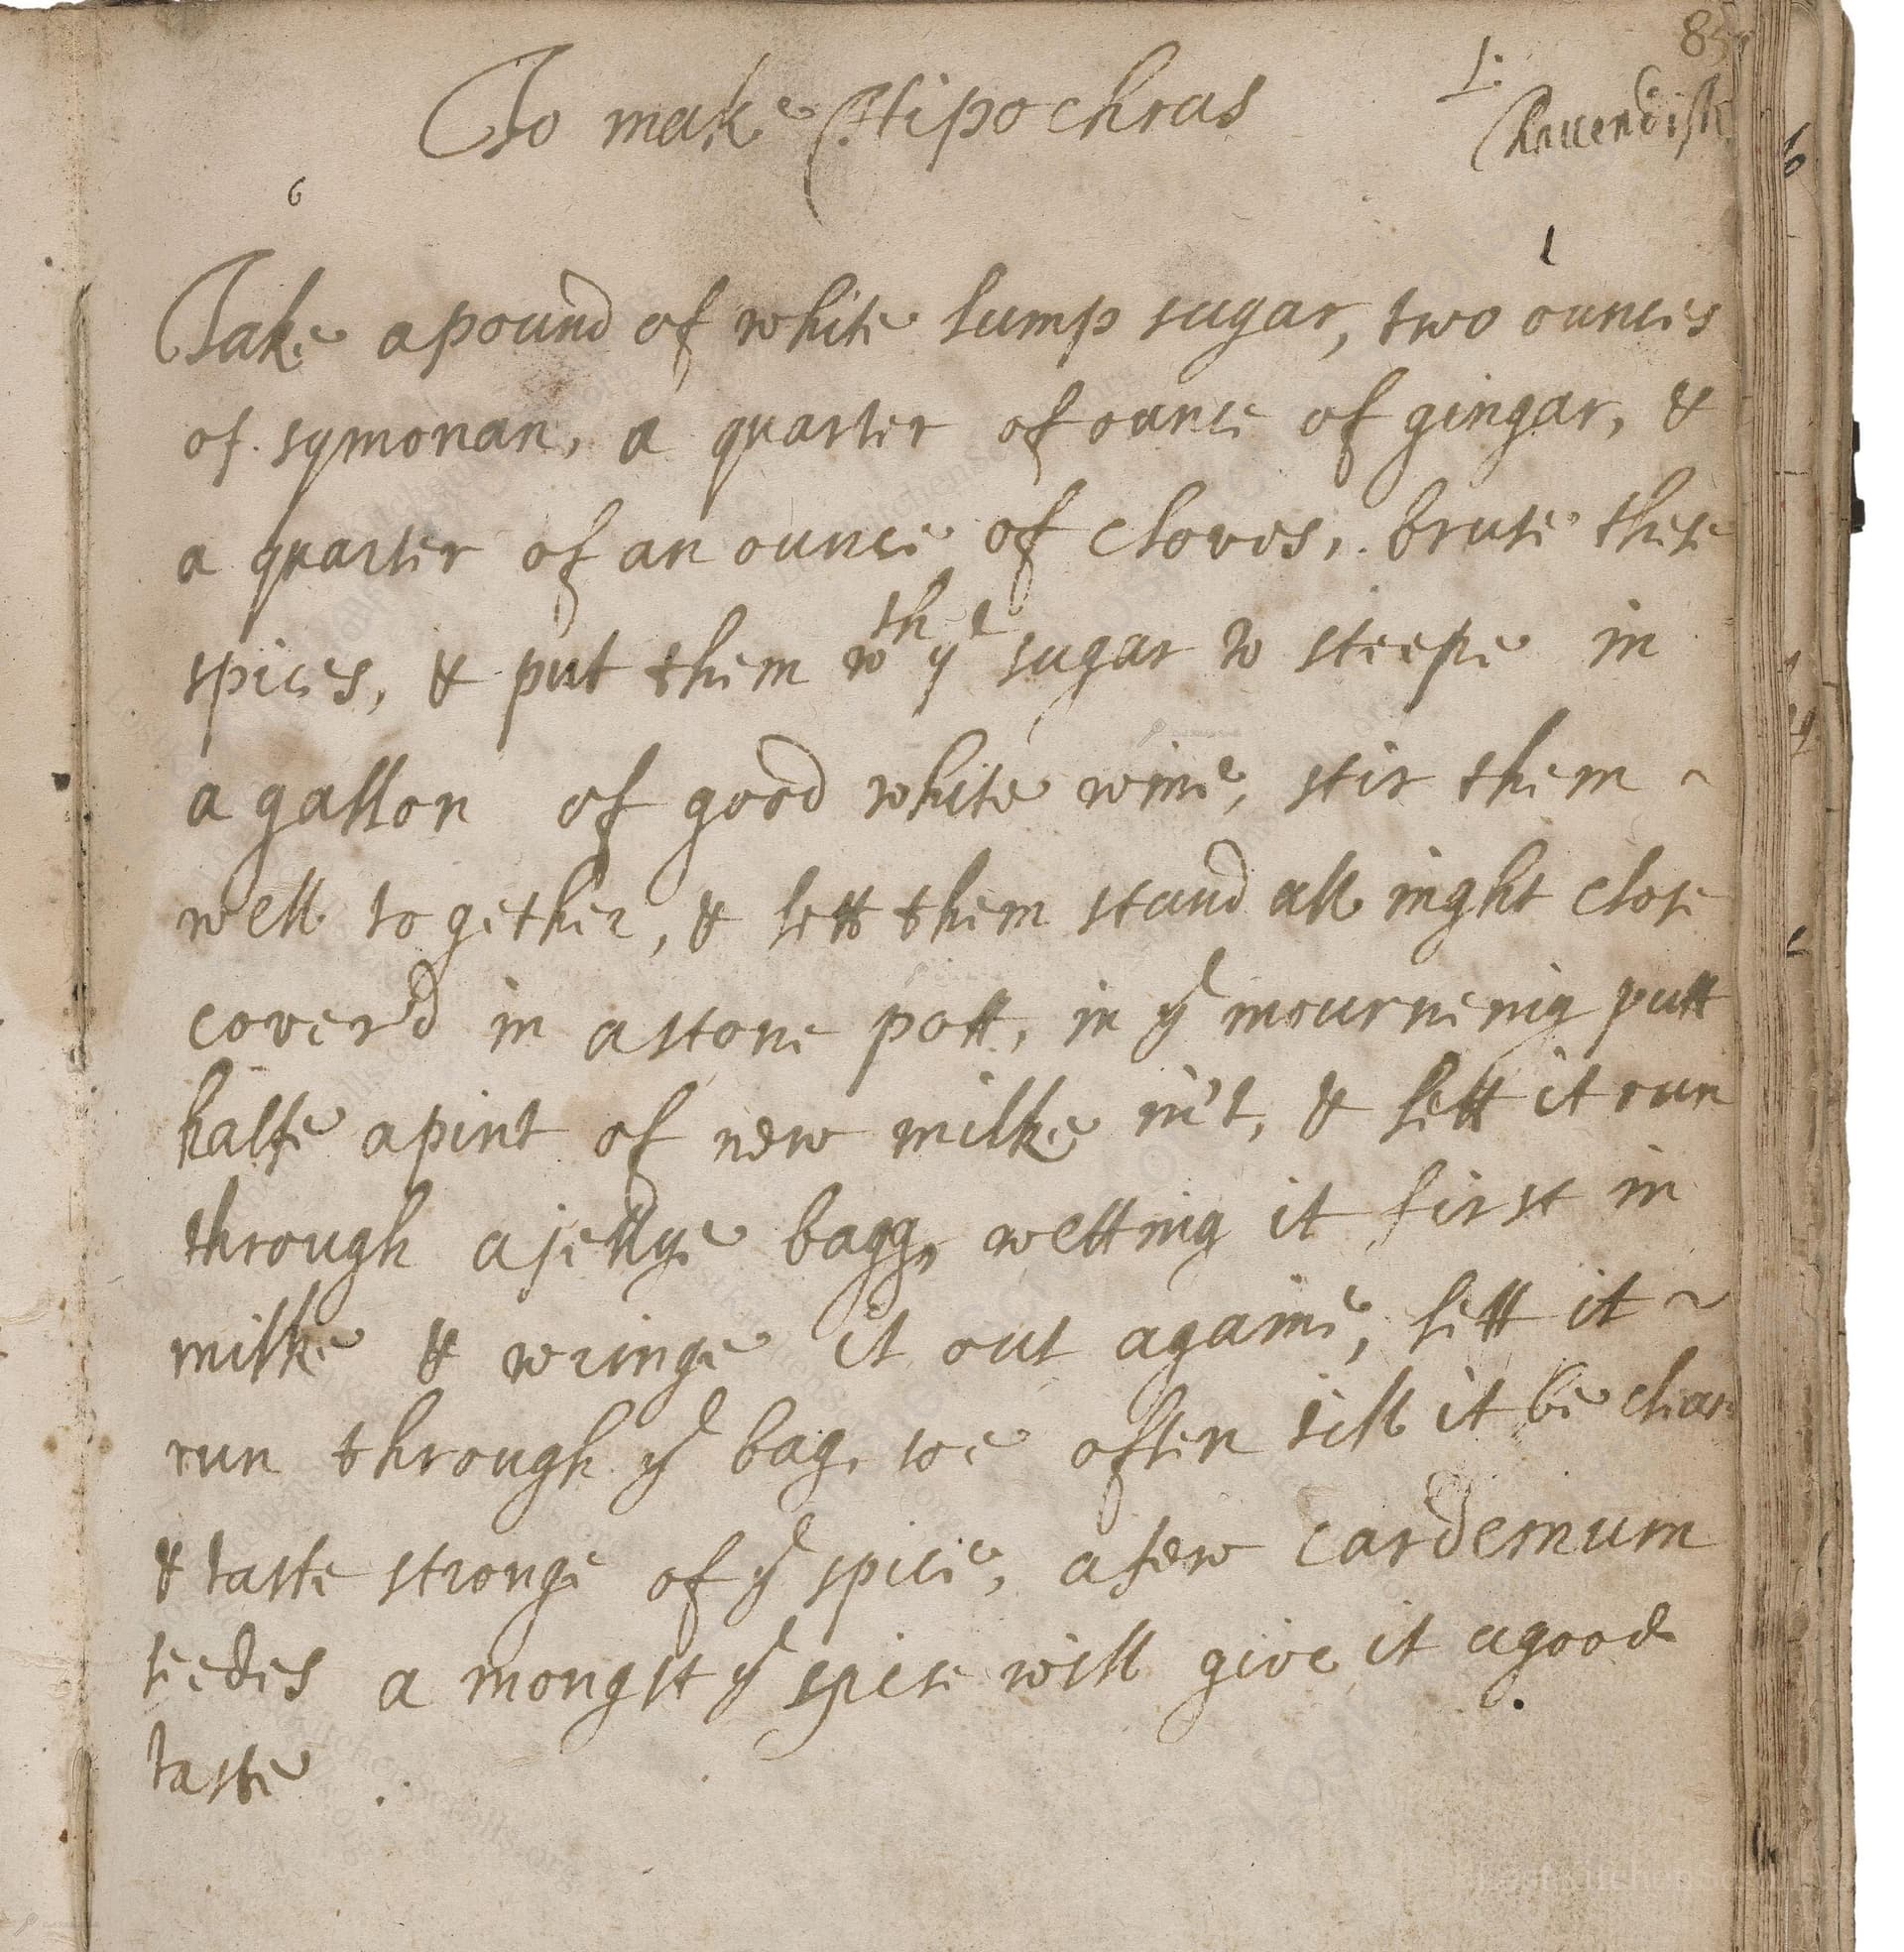 85
To make Hipochras
L:
Cavendish
6
Take a pound of white lump sugar, two ounces
of symonan, a quarter of ounce of gingar, &
a quarter of an ounce of cloves, bruse these
spices, & put them wth ye sugar to steepe in
a gallon of good white wine, stir them ~
well together, & lett them stand all night close
cover'd in a stone pott, in ye mournening putt
halfe a pint of new milke in't, & lett it run
through a jellye bagg, wetting it first in
milke & wringe it out againe, lett it ~
run through ye bag, soe often till it be clear
& taste stronge of ye spice, a few cardemum
seedes a mongst ye spice will give it a good
taste .